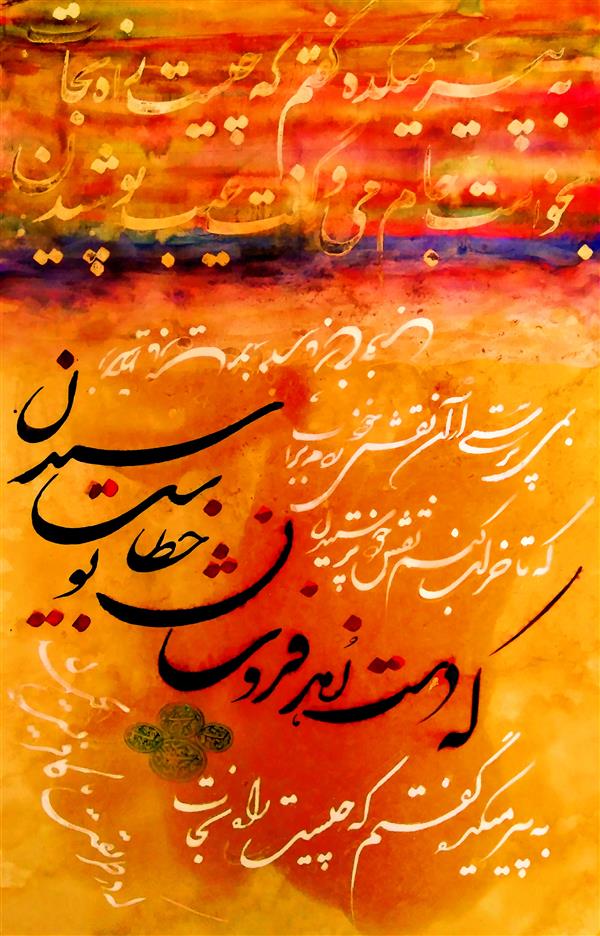 به پیر میکده گفتم که چیست راه نجات
بخواست جام می و گفت عیب پوشیدن
بمی پرستی ازآن نقش خود زدم برآب
که تا خراب کنم نقش خود پرستیدن
که دست زهد فروشان خطاست بوسیدن
به پیر میکده گفتم که چیست راه نجات